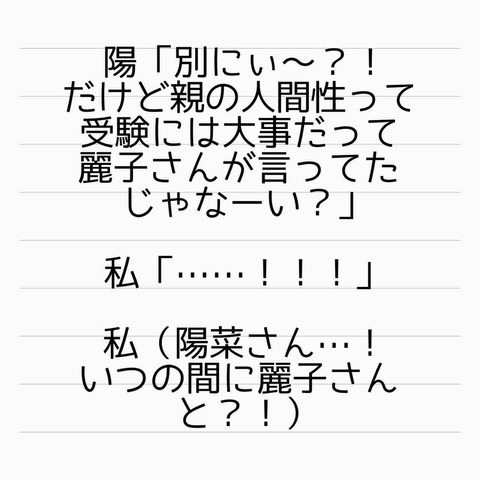 陽「別にぃ〜？！
だけど親の人間性って
受験には大事だって
麗子さんが言ってた
じゃなーい？」
私「……！！！」
私（陽菜さん…！
いつの間に麗子さん
と？！）